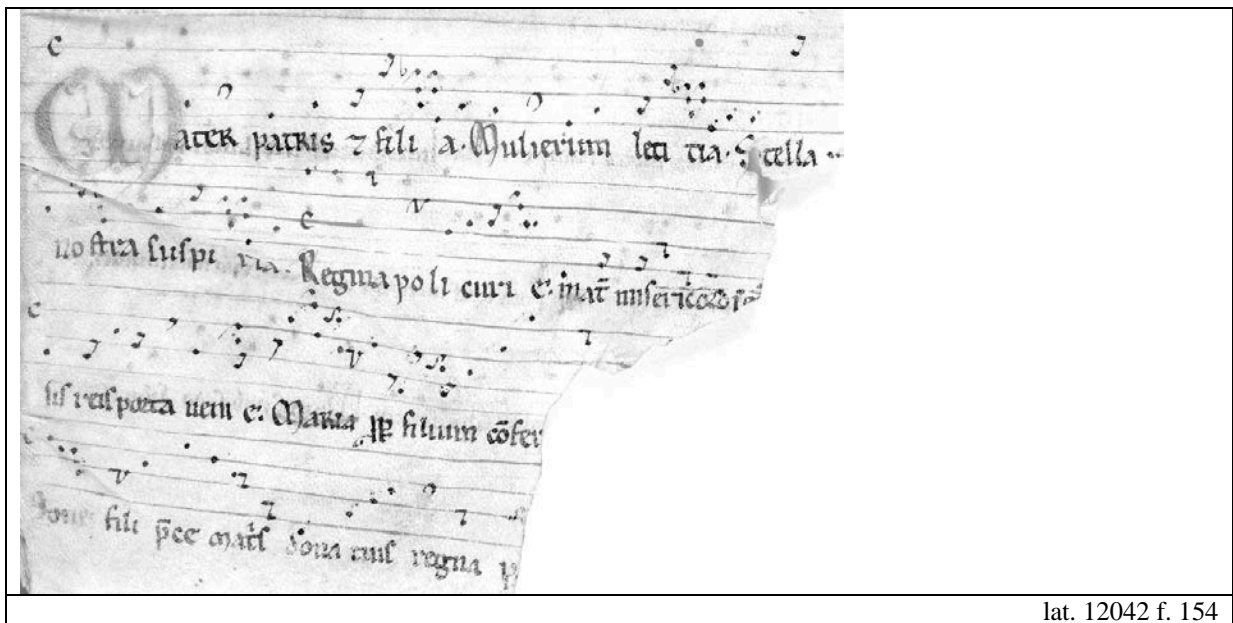 MATER PATRIS ⁊ fili a. Mulierum leti tia. stella
nostra suspi ria. Regina poli curi e. mat̄
sis reis porta veni e. MARIA ꝑ filium cōfer
bone fili p̄ce mat̄s dona tuis regna
lat. 12042 f. 154